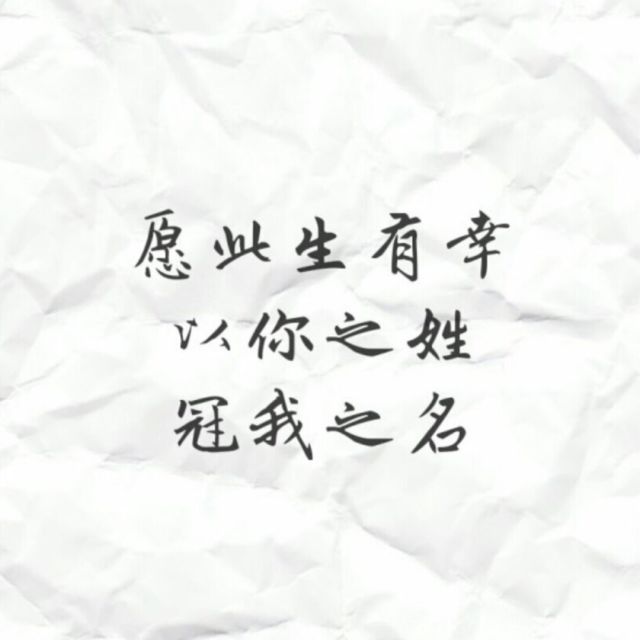 愿此生有幸
以你之姓
冠我之名